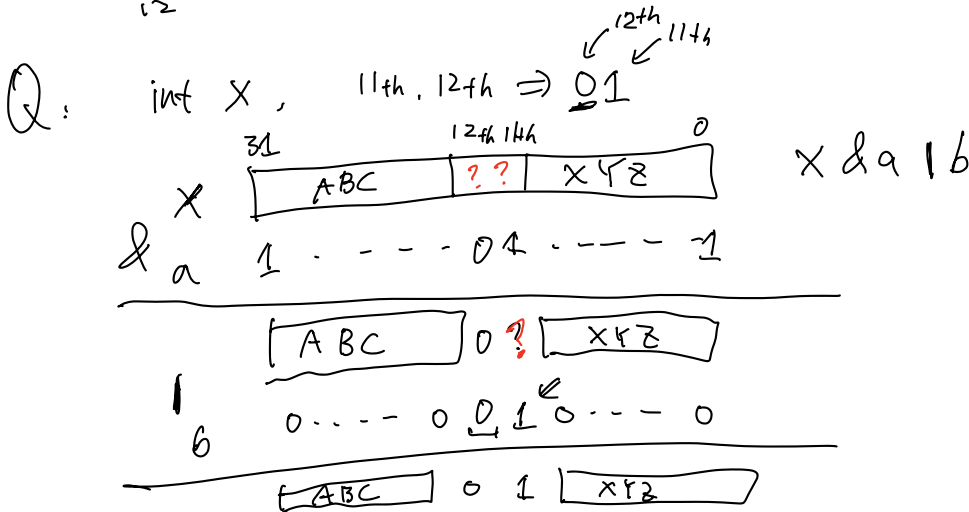 12
12th
11th
Q: int X, 11th, 12th ⇒ 01
31 12th 11th 0
X ABC ? ? XYZ X & a | b
& a 1 . - - - - 0 1 . - - - - 1
ABC 0 ? XYZ
| b 0 . . - - - 0 0 1 0 - - - - 0
ABC 0 1 XYZ